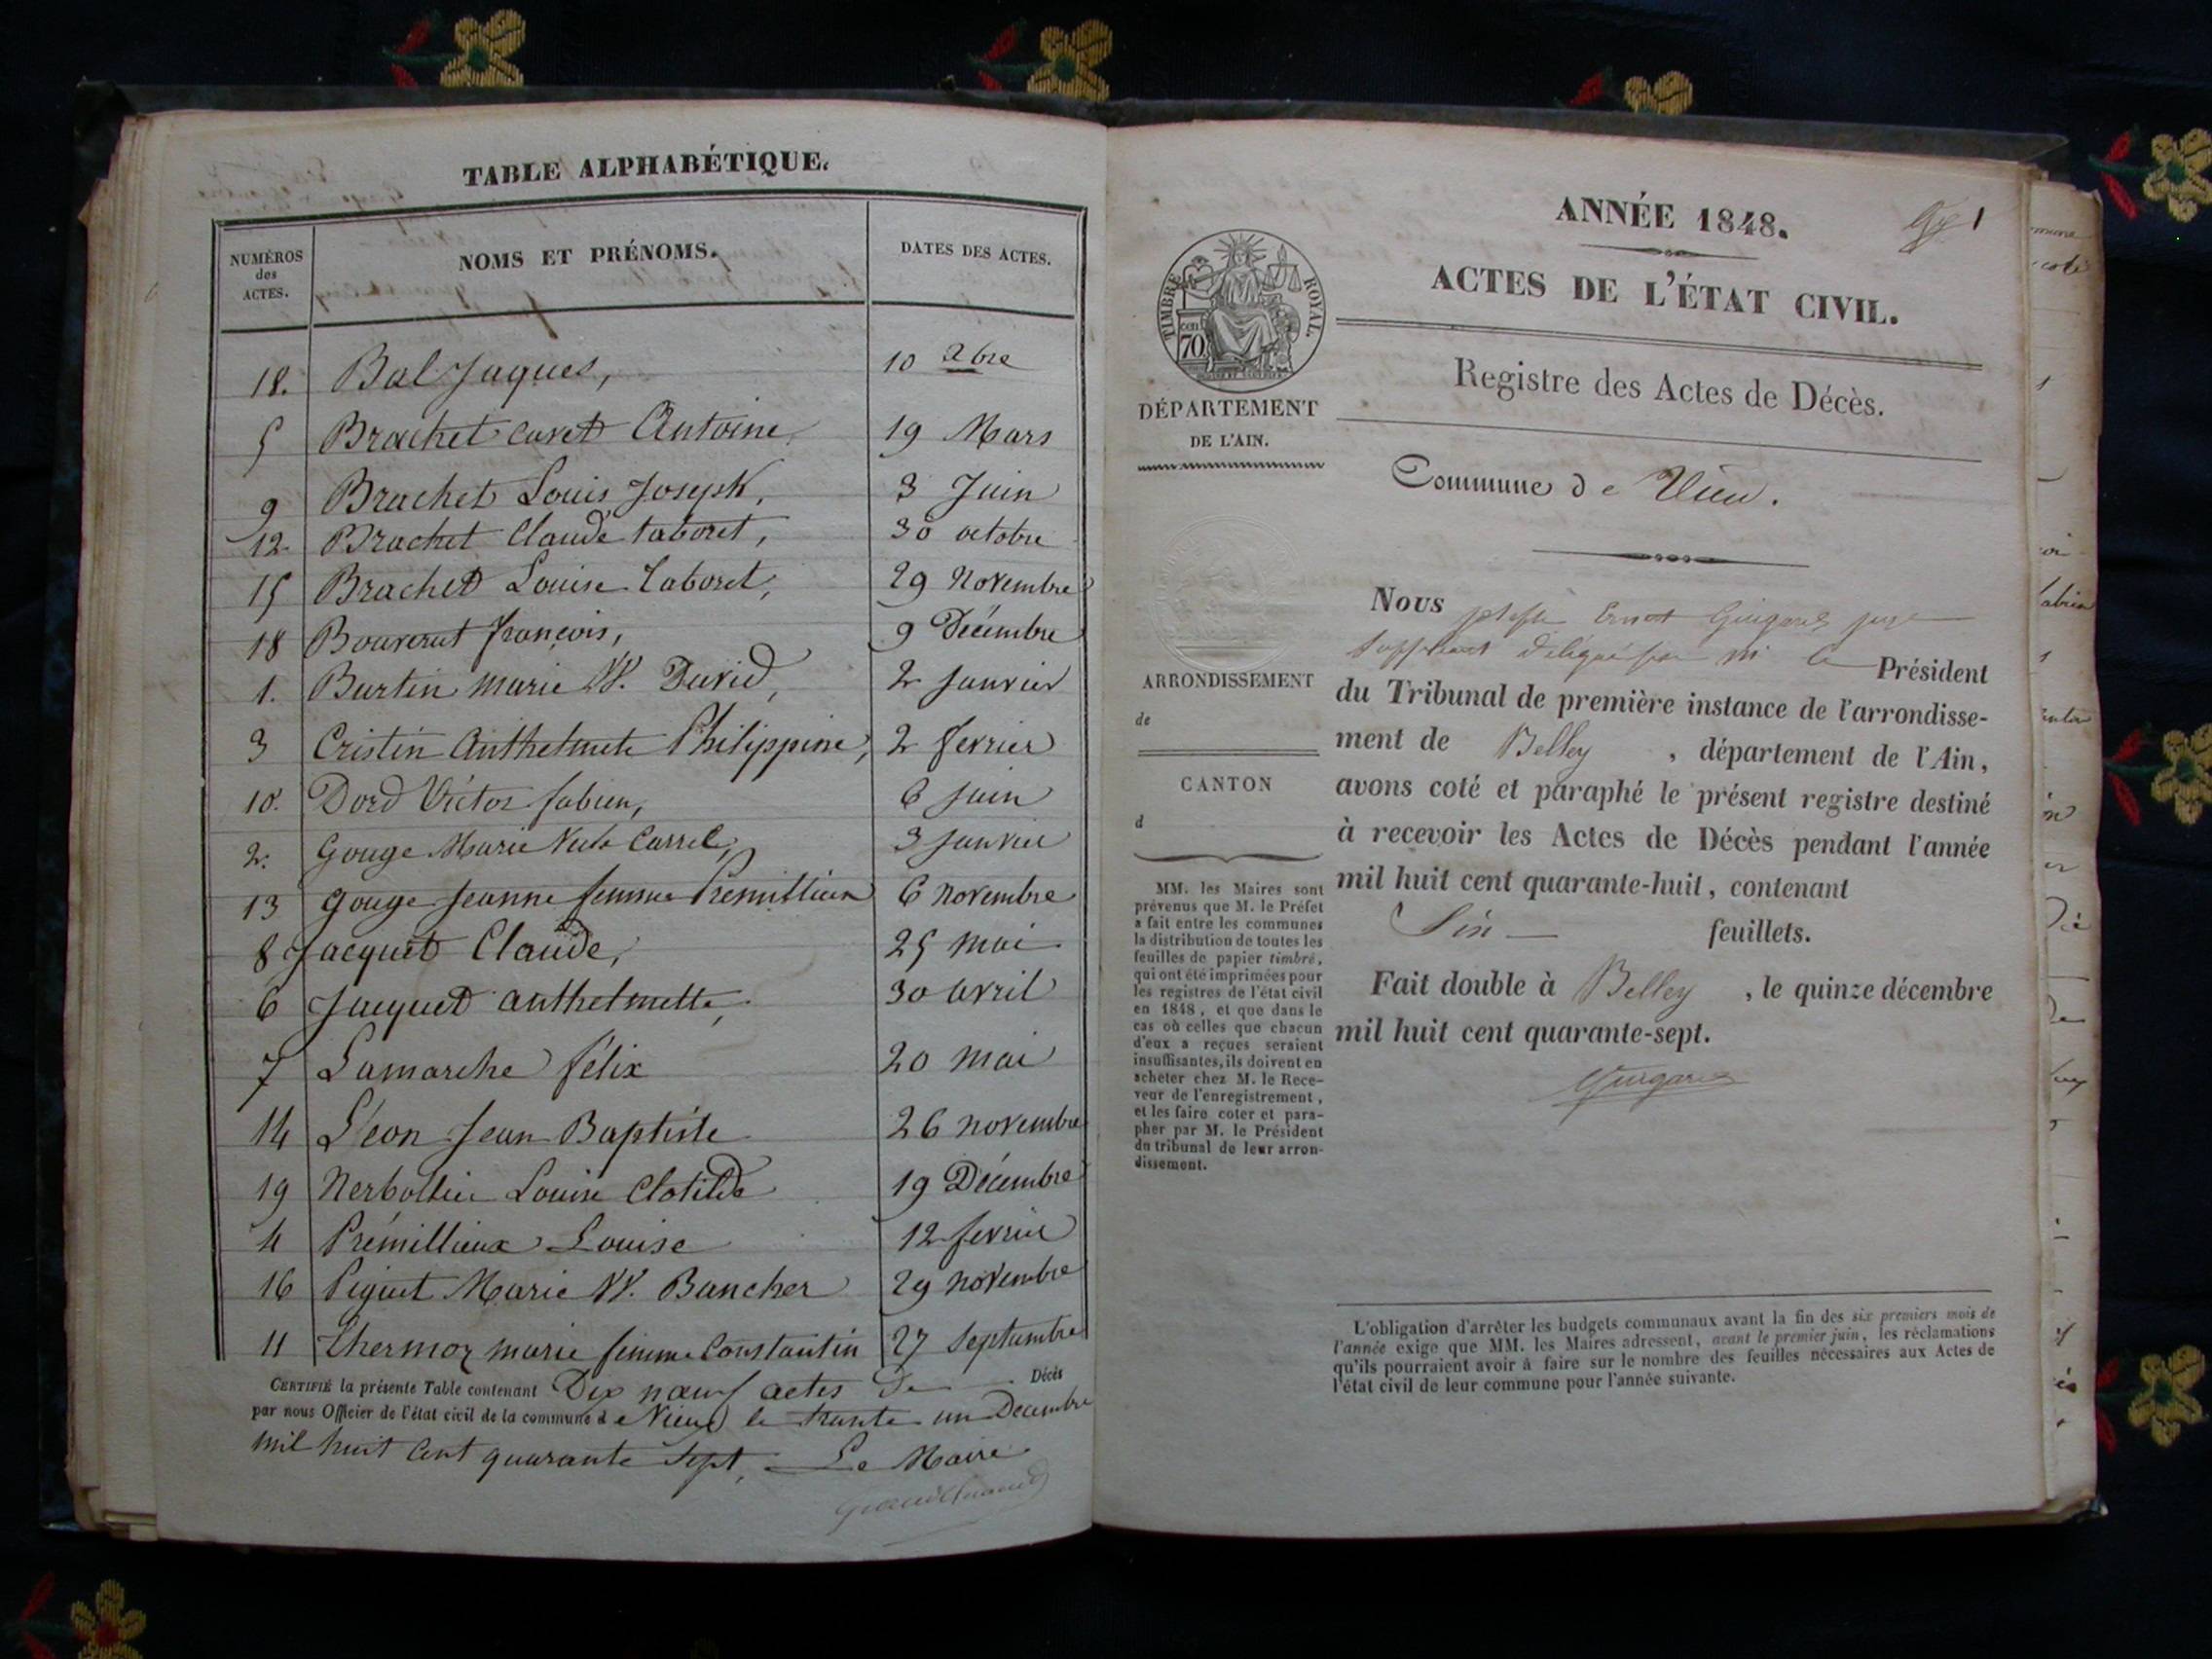 TABLE ALPHABÉTIQUE.
NUMÉROS des ACTES. NOMS ET PRÉNOMS. DATES DES ACTES.
18. Bal Jaques, 10 Xbre
5 Brachet Antoine 19 Mars
9 Brachet Louis Joseph, 3 Juin
12. Brachet Claude taboret, 30 octobre
15 Brachet Louise taboret, 29 Novembre
18 Bouverat françois, 9 Décembre
1. Burtin marie Vve. David, 2 Janvier
3 Cristin Anthelmete Philippine, 2 fevrier
10. Dord Victor fabien, 6 Juin
2. Gouge Marie Carrel, 3 Janvier
13 Gouge Jeanne femme Premillieux 6 novembre
8 Jacquet Claude, 25 mai
6 Jacquet anthelmette, 30 avril
7 Lamarche félix 20 mai
14 Léon Jean Baptiste 26 novembre
19 Nerbollier Louise Clotilde 19 Décembre
4 Prémillieux Louise 12 fevrier
16 Piguet Marie Vve. Bancher 29 novembre
11 thermoz marie femme Constantin 27 Septembre
CERTIFIÉ la présente Table contenant Dix neuf actes De Décès
par nous Officier de l'état civil de la commune d e Vieu le trente un Décembre
mil huit cent quarante sept, Le Maire
1
ANNÉE 1848.
ACTES DE L'ÉTAT CIVIL.
TIMBRE ROYAL
cen 70
DÉPARTEMENT
DE L'AIN.
Registre des Actes de Décès.
Commune d e Vieu.
ARRONDISSEMENT
de
CANTON
d
MM. les Maires sont
prévenus que M. le Préfet
a fait entre les communes
la distribution de toutes les
feuilles de papier timbré,
qui ont été imprimées pour
les registres de l'état civil
en 1848, et que dans le
cas où celles que chacun
d'eux a reçues seraient
insuffisantes, ils doivent en
acheter chez M. le Rece-
veur de l'enregistrement,
et les faire coter et para-
pher par M. le Président
du tribunal de leur arron-
dissement.
Nous Ernest Guigard juge
suppléant délégué par M le Président
du Tribunal de première instance de l'arrondisse-
ment de Belley, département de l'Ain,
avons coté et paraphé le présent registre destiné
à recevoir les Actes de Décès pendant l'année
mil huit cent quarante-huit, contenant
Six feuillets.
Fait double à Belley, le quinze décembre
mil huit cent quarante-sept.
Guigard
L'obligation d'arrêter les budgets communaux avant la fin des six premiers mois de
l'année exige que MM. les Maires adressent, avant le premier juin, les réclamations
qu'ils pourraient avoir à faire sur le nombre des feuilles nécessaires aux Actes de
l'état civil de leur commune pour l'année suivante.